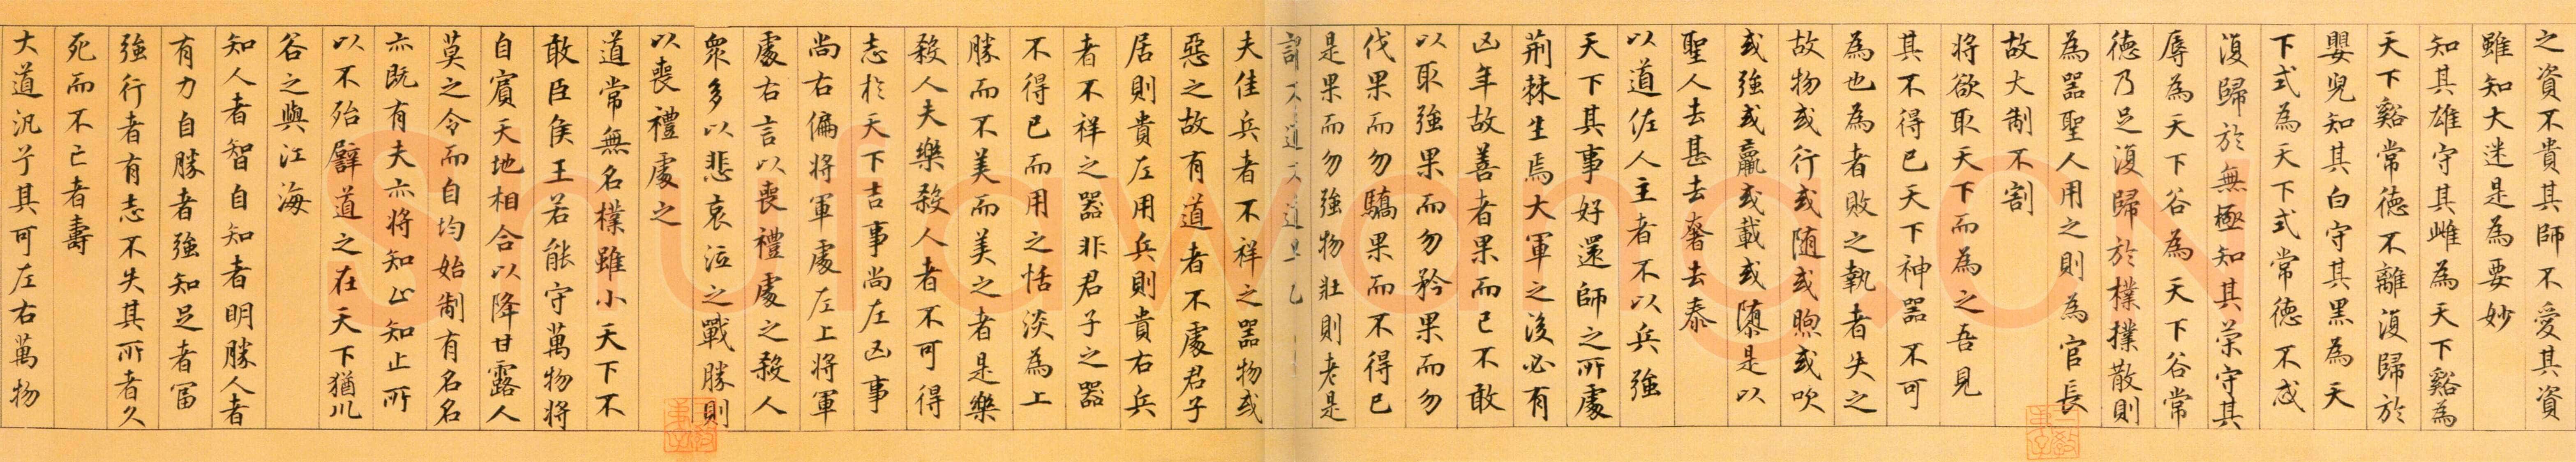 之資不貴其師不愛其資
雖知大迷是為要妙
知其雄守其雌為天下谿為
天下谿常德不離復歸於
嬰兒知其白守其黑為天
下式為天下式常德不忒
復歸於無極知其榮守其
辱為天下谷為天下谷常
德乃足復歸於樸樸散則
為器聖人用之則為官長
故大制不割
将欲取天下而為之吾見
其不得已天下神器不可
為也為者敗之執者失之
故物或行或随或煦或吹
或強或羸或載或隳是以
聖人去甚去奢去泰
以道佐人主者不以兵強
天下其事好還師之所處
荊棘生焉大軍之後必有
凶年故善者果而已不敢
以取強果而勿矜果而勿
伐果而勿驕果而不得已
是果而勿強物壯則老是
謂不道不道早已
夫佳兵者不祥之器物或
惡之故有道者不處君子
居則貴左用兵則貴右兵
者不祥之器非君子之器
不得已而用之恬淡為上
勝而不美而美之者是樂
殺人夫樂殺人者不可得
志於天下吉事尚左凶事
尚右偏将軍處左上将軍
處右言以喪禮處之殺人
衆多以悲哀泣之戰勝則
以喪禮處之
道常無名樸雖小天下不
敢臣侯王若能守萬物将
自賓天地相合以降甘露人
莫之令而自均始制有名名
亦既有夫亦将知止知止所
以不殆譬道之在天下猶川
谷之與江海
知人者智自知者明勝人者
有力自勝者強知足者富
強行者有志不失其所者久
死而不亡者壽
大道汎兮其可左右萬物
Shufawang.CN